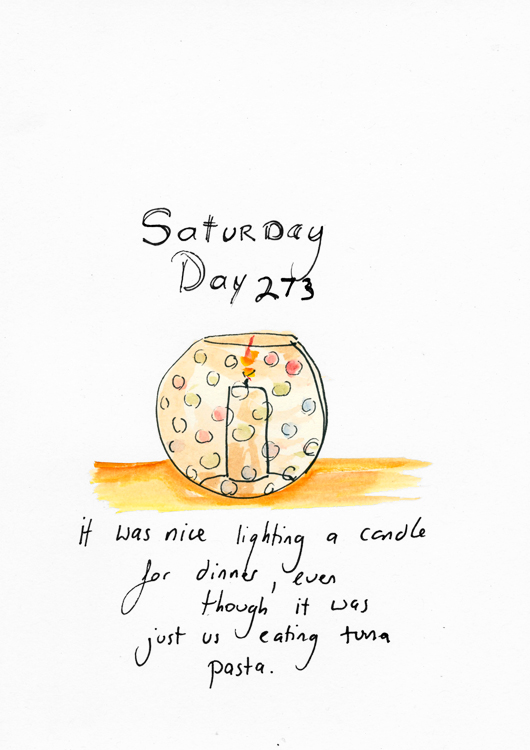 Saturday
Day 273
it was nice lighting a candle
for dinner, even
though it was
just us eating tuna
pasta.